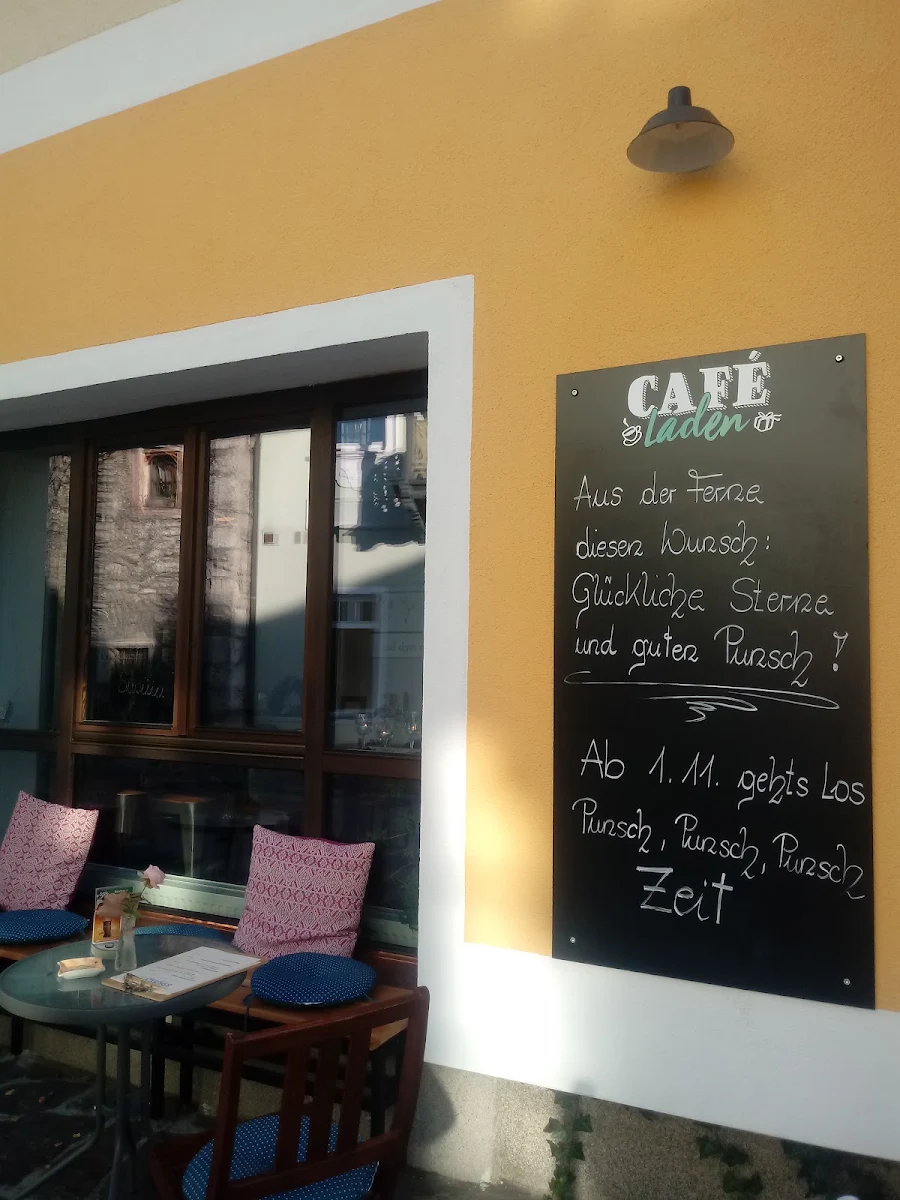 CAFÉ
laden
Aus der Ferne
diesen Wunsch:
Glückliche Sterne
und guten Punsch!
Ab 1.11. gehts Los
Punsch, Punsch, Punsch
Zeit